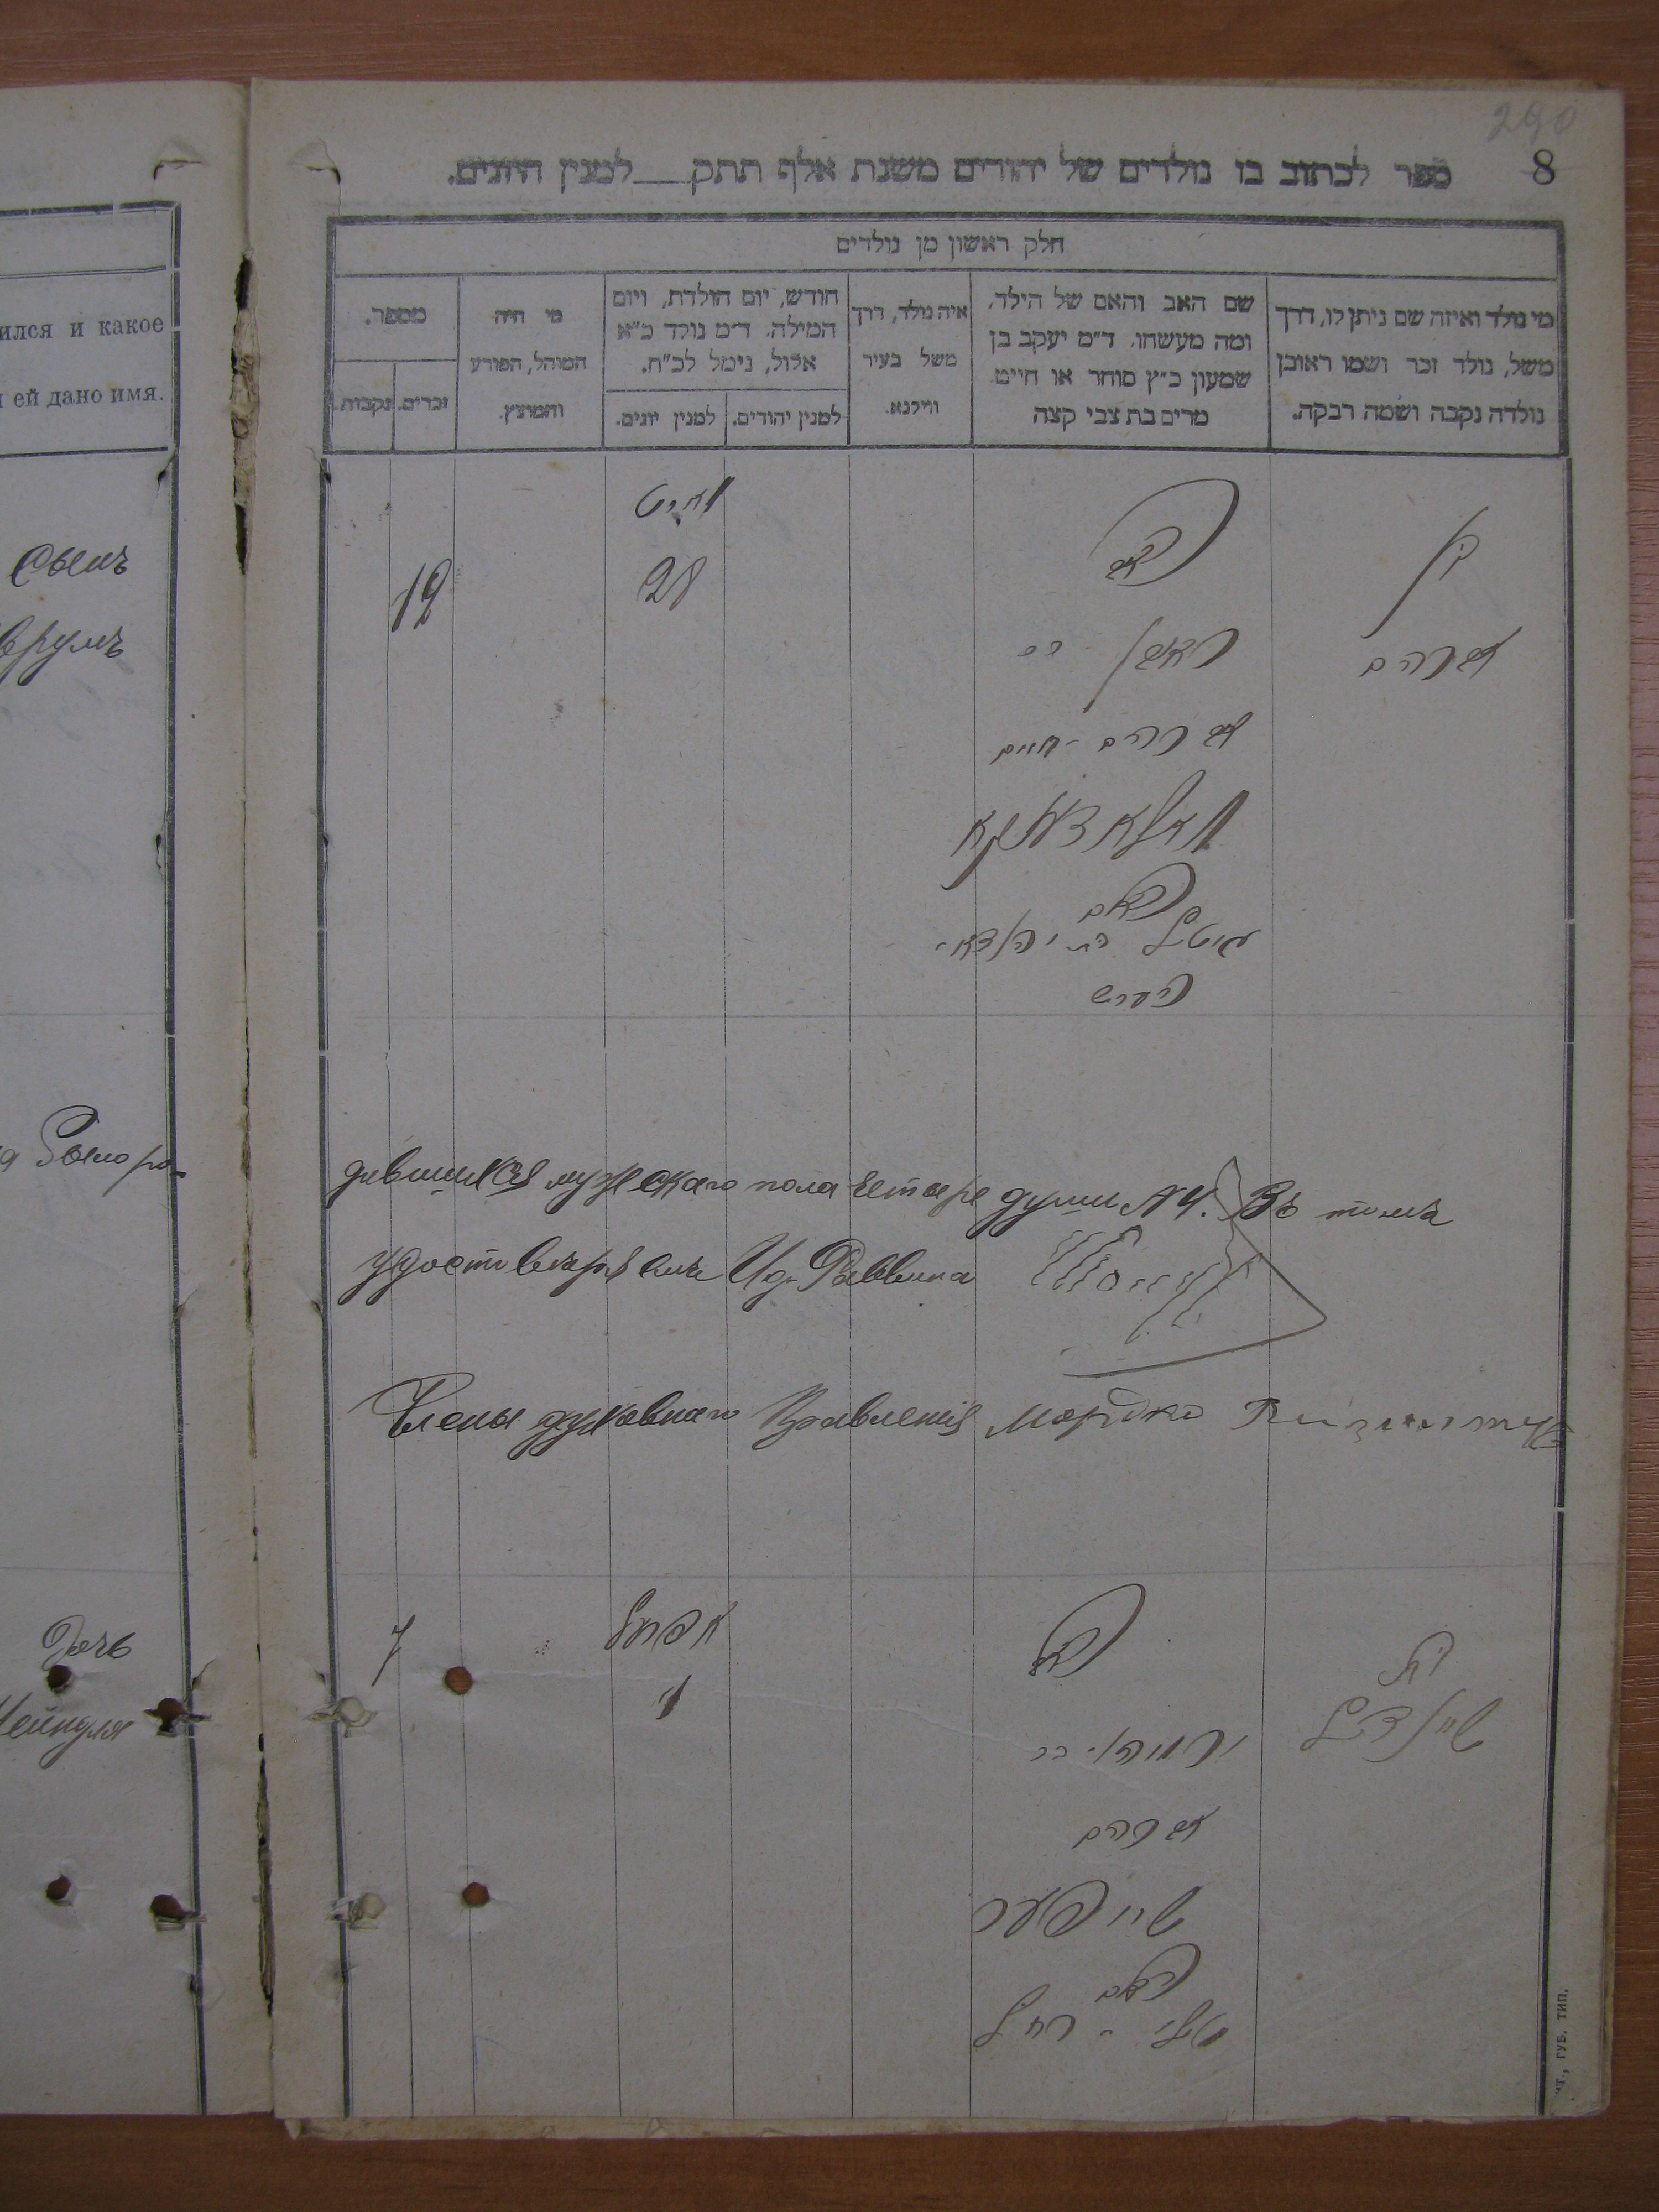 290
8
ספר לכתוב בו נולדים של יהודים משנת אלף תתק___למנין היונים.
חלק ראשון מן נולדים
מי נולד ואיזה שם ניתן לו, דרך
משל, נולד זכר ושמו ראובן
נולדה נקבה ושמה רבקה.
שם האב והאם של הילד,
ומה מעשהו. ד"מ יעקב בן
שמעון כ"ץ סוחר או חייט
מרים בת צבי קצב
איה נולד, דרך
משל בעיר
ווילנא.
חודש, יום הולדת, ויום
המילה. ד"מ נולד כ"א
אלול, נימל לכ"ח.
למנין יהודים.
למנין יונים.
מי היה
המוהל, הפורע
והמוצץ.
מספר.
זכרים.
נקבות.
בן
אברהם
האב
ראובן בר
אברהם-חיים
האם
מאי
28
12
дившихся мужскаго пола четыре души №4. Въ томъ
удостовѣряемъ И.д. Раввина
Члены духовнаго Правленія Мордко
בת
שיינדל
האב
ירמיהו בר
אברהם
האם
רחל
אפריל
1
7
ился и какое
ей дано имя.
Сынъ
Дочь
Шейндля
ИТ., ГУБ. ТИП.